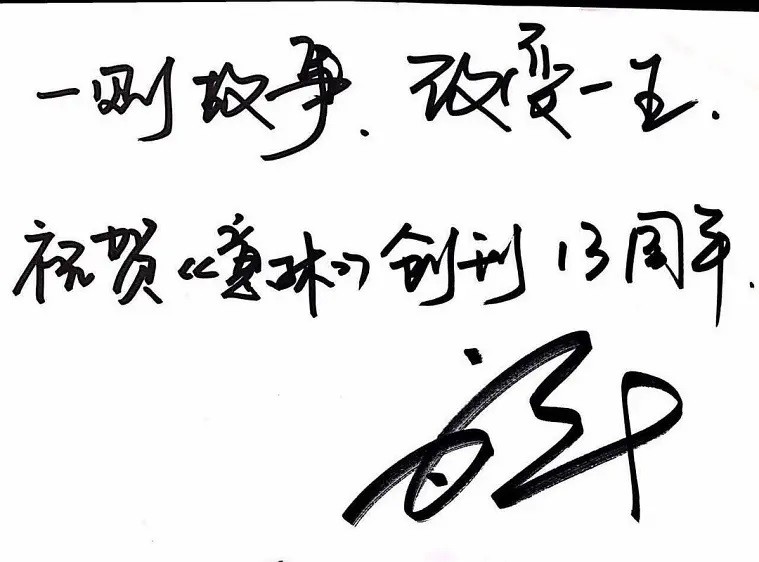 一则故事.改变一生.
祝贺《意林》创刊13周年.